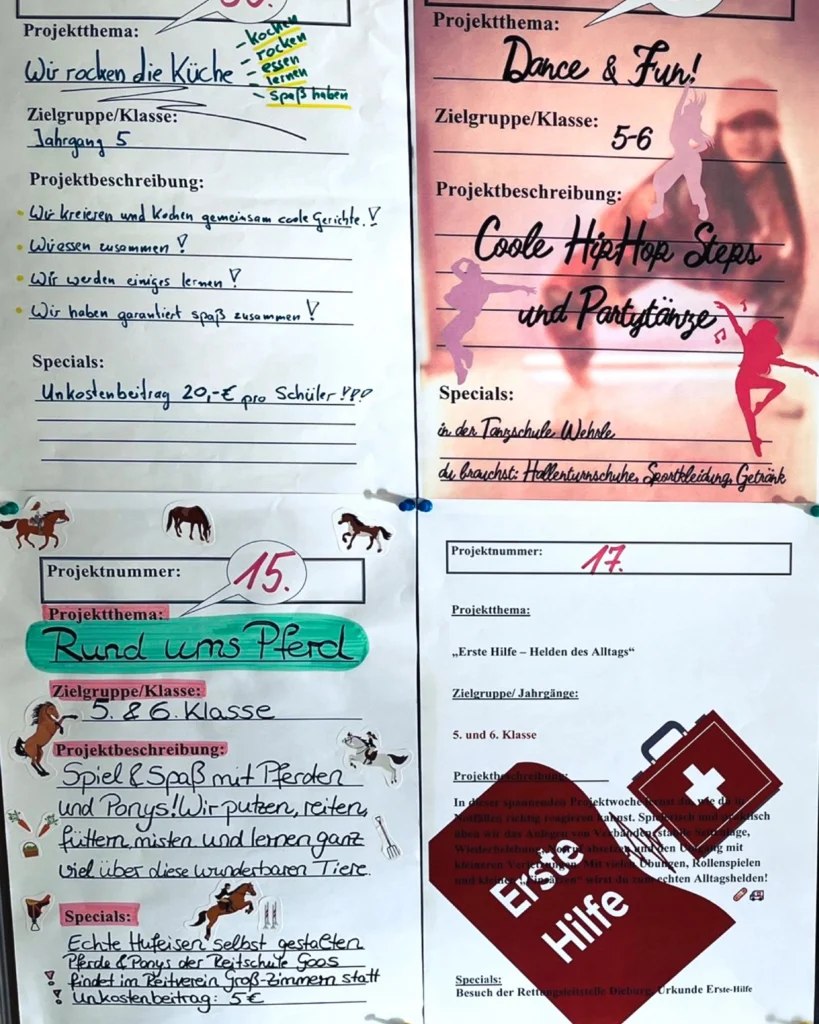 Projektthema:
Wir rocken die Küche
- kochen
- rocken
- essen
- lernen
- spaß haben
Zielgruppe/Klasse:
Jahrgang 5
Projektbeschreibung:
• Wir kreieren und kochen gemeinsam coole Gerichte!
• Wir essen zusammen!
• Wir werden einiges lernen!
• Wir haben garantiert spaß zusammen!
Specials:
Unkostenbeitrag 20,-€ pro Schüler!!!
Projektthema:
Dance & Fun!
Zielgruppe/Klasse:
5-6
Projektbeschreibung:
Coole HipHop Steps
und Partytänze
Specials:
in der Tanzschule Wehrle
du brauchst: Hallenturnschuhe, Sportkleidung, Getränk
Projektnummer: 15.
Projektthema:
Rund ums Pferd
Zielgruppe/Klasse:
5. & 6. Klasse
Projektbeschreibung:
Spiel & Spaß mit Pferden
und Ponys! Wir putzen, reiten,
füttern, misten und lernen ganz
viel über diese wunderbaren Tiere.
Specials:
Echte Hufeisen selbst gestalten
Pferde & Ponys der Reitschule Goos
! findet im Reitverein Groß-Zimmern statt
! Unkostenbeitrag: 5€
Projektnummer: 17.
Projektthema:
„Erste Hilfe – Helden des Alltags“
Zielgruppe/ Jahrgänge:
5. und 6. Klasse
Projektbeschreibung:
In dieser spannenden Projektwoche lernst du, wie du in
Notfällen richtig reagieren kannst. Spielerisch und praktisch
üben wir das Anlegen von Verbänden, stabile Seitenlage,
Wiederbelebung, Notruf absetzen und den Umgang mit
kleineren Verletzungen. Mit vielen Übungen, Rollenspielen
und kleinen „Einsätzen“ wirst du zum echten Alltagshelden!
Erste
Hilfe
Specials:
Besuch der Rettungsleitstelle Dieburg, Urkunde Erste-Hilfe